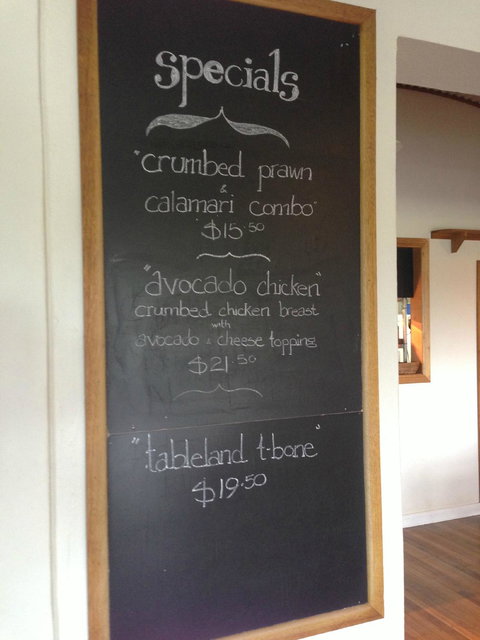 specials
"crumbed prawn
&
calamari combo"
$15.50
"avocado chicken"
crumbed chicken breast
with
avocado & cheese topping
$21.50
"tableland t-bone"
$19.50